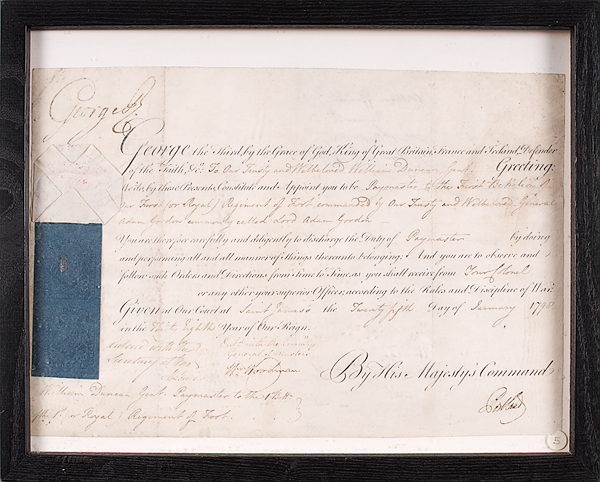 George R
George the Third, by the Grace of God, King of Great Britain, France and Ireland, Defender
of the Faith, &c. To Our Trusty and Welbeloved William Duncan Gent. Greeting:
We do, by these Presents, Constitute and Appoint you to be Paymaster to the First Battalion of
Our First (or Royal) Regiment of Foot, commanded by Our Trusty and Welbeloved General
Adam Gordon commonly called Lord Adam Gordon
You are therefore carefully and diligently to discharge the Duty of Paymaster by doing
and performing all and all manner of things thereunto belonging: And you are to observe and
follow such Orders and Directions from Time to Time, as you shall receive from Your Colonel
or any other your superior Officer, according to the Rules and Discipline of War.
Given at Our Court at Saint James's the Twenty fifth Day of January 179
in the Thirty Eighth Year of Our Reign.
Entered with the
Secretary at War
Entered with the Commissary
General of Musters
By His Majesty's Command
Portland
William Duncan Gent. Paymaster to the 1st Batt.
of the 1st (or Royal) Regiment of Foot.
5